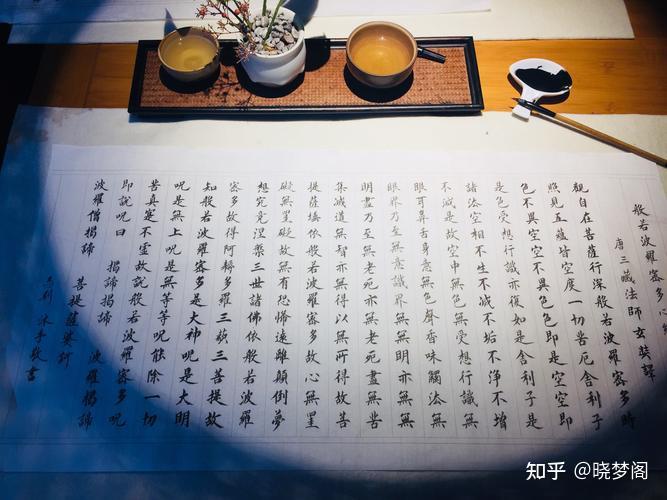 般若波羅蜜多心
唐三藏法師玄奘譯
觀自在菩薩行深般若波羅蜜多時
照見五蘊皆空度一切苦厄舍利子
色不異空空不異色色即是空空即
是色受想行識亦復如是舍利子是
諸法空相不生不滅不垢不淨不增
不減是故空中無色無受想行識無
眼耳鼻舌身意無色聲香味觸法無
眼界乃至無意識界無無明亦無無
明盡乃至無老死亦無老死盡無苦
集滅道無智亦無得以無所得故菩
提薩埵依般若波羅蜜多故心無罣
礙無罣礙故無有恐怖遠離顛倒夢
想究竟涅槃三世諸佛依般若波羅
蜜多故得阿耨多羅三藐三菩提故
知般若波羅蜜多是大神呪是大明
呪是無上呪是無等等呪能除一切
苦真實不虛故說般若波羅蜜多呪
即說呪曰 揭諦揭諦 波羅揭諦
波羅僧揭諦 菩提薩婆訶
敬書
知乎 @晓梦阁